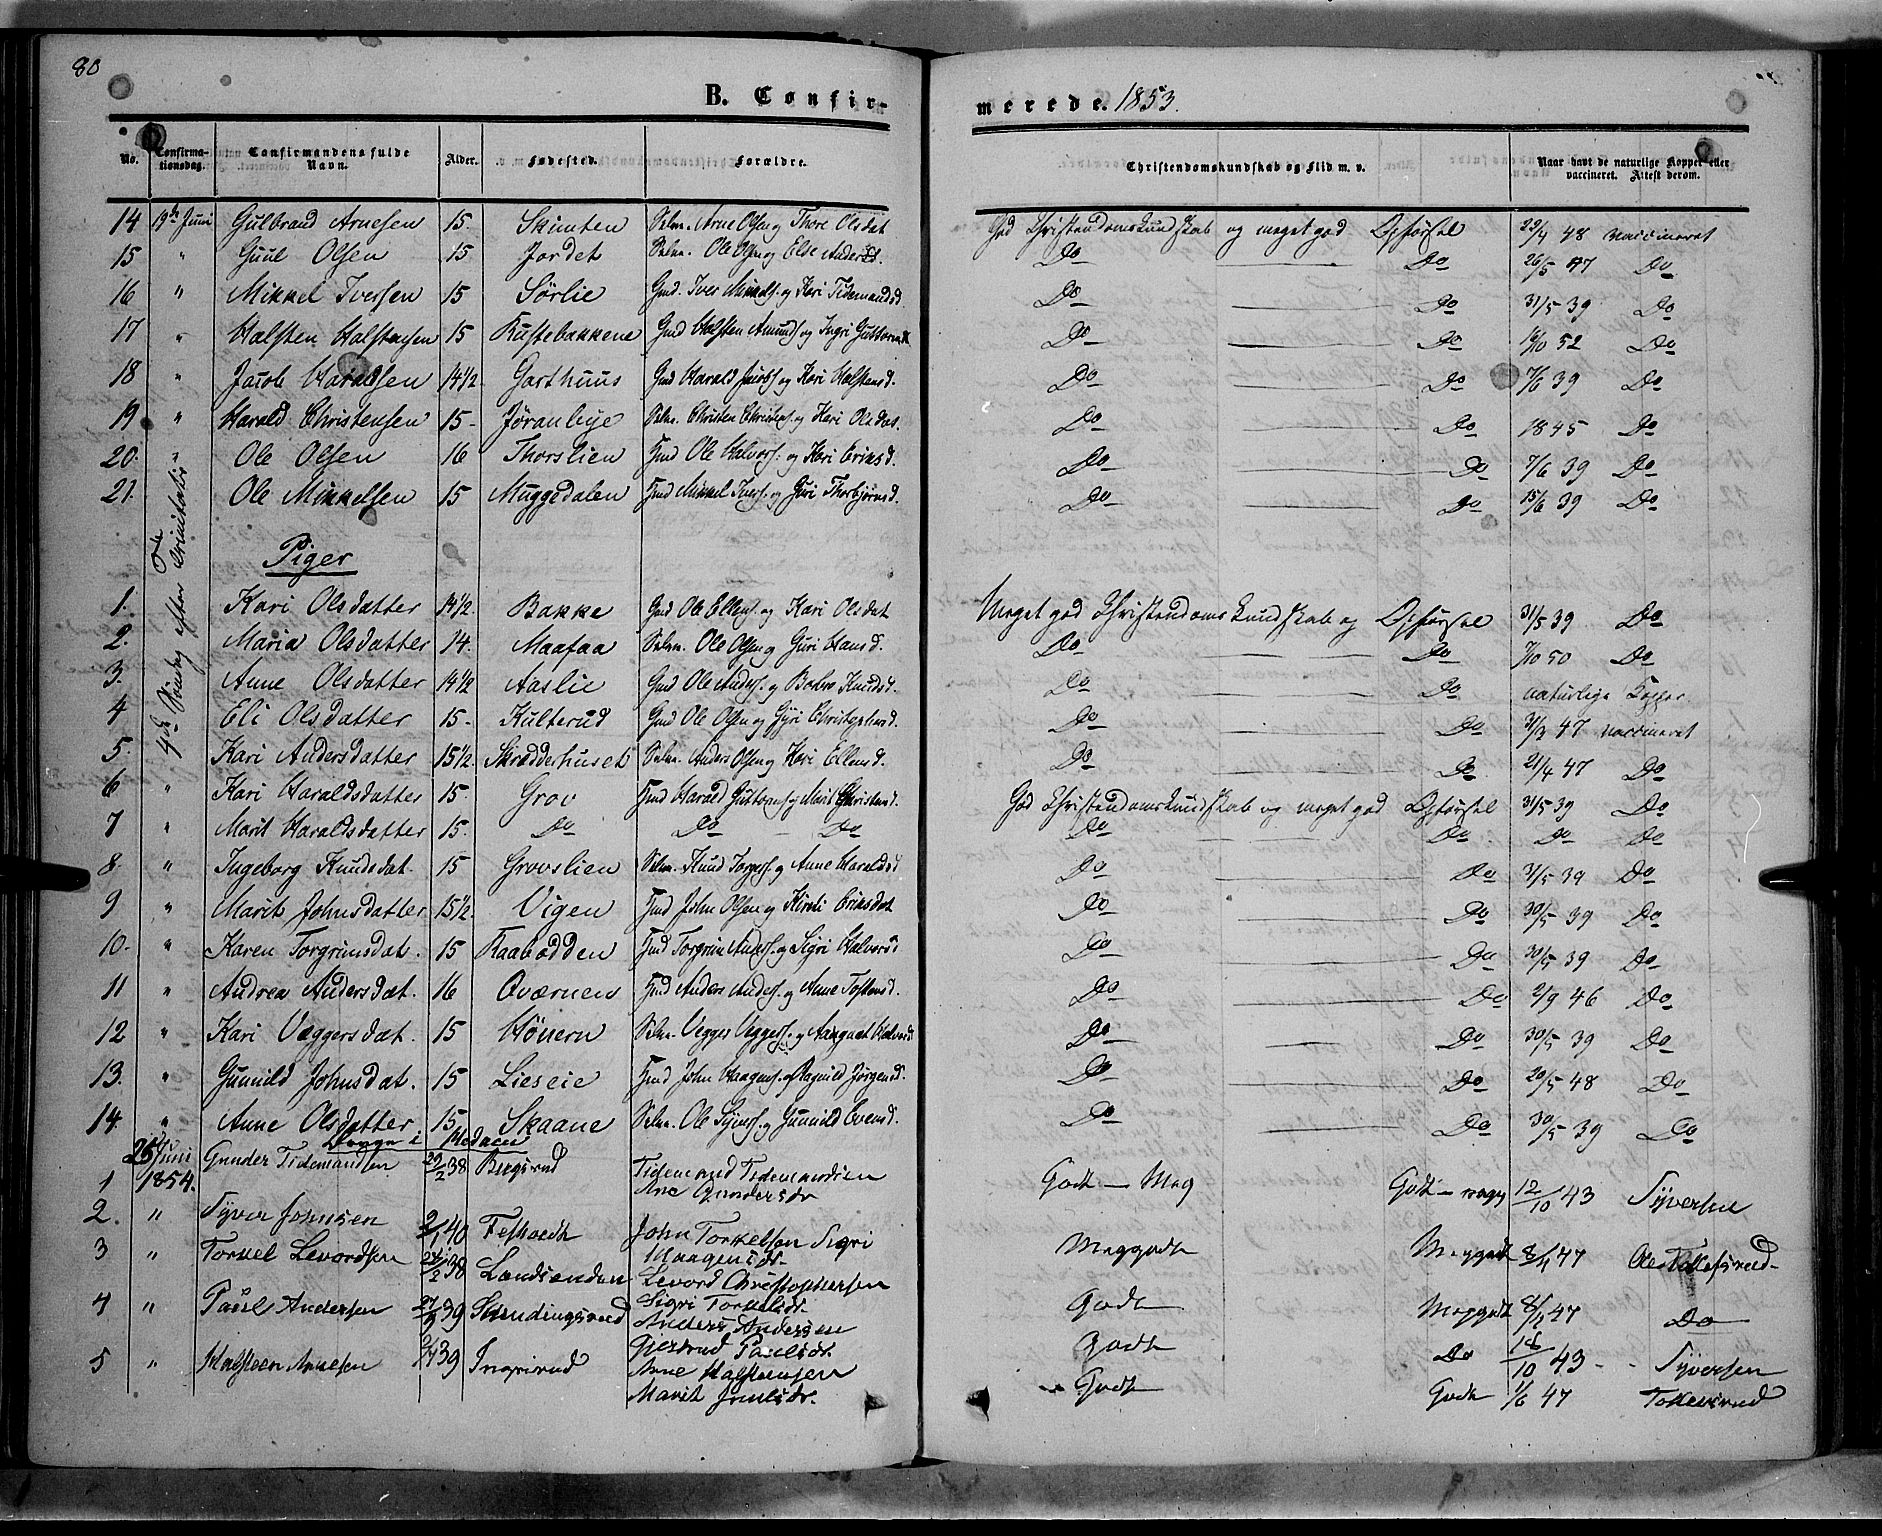 80
B. Confirmerede. 1853.
No. Confirmationsdag. Confirmandens fulde Navn. Alder. Fødested. Forældre. Christendomskundskab og Flid m. v. Naar havt de naturlige Kopper eller vaccineret. Attest derom.
14 19de Juni Gulbrand Arnesen 15. Skinten Selve. Arne Olsen og Thore Olsdat God Christendomskundskab og meget god Opførsel 23/4 48 vaccineret
15 " Guul Olsen 15 Jordet Selve. Ole Olsen og Else Andersd. Do Do 26/5 47 Do
16 " Mikkel Iversen 15 Sørlie Gmd. Iver Mikkels. og Kari Tidemandsd Do Do 31/5 39 Do
17 " Halsten Halstensen 15 Gmd Halsten Amunds. og Ingri Do Do 52 Do
18 " Jacob Haraldsen 14 1/2 Garthuus Gmd Harald Jacobs. og Kari Halstensd. Do Do 7/6 39 Do
19 " Harald Christensen 15- Jøranbye Selve. Christen Christens. og Kari Olsdat. Do Do 1845 Do
20. " Ole Olsen 16 Thorslien Hmd Ole Halvors. og Kari Eriksd. Do Do 7/6 39 Do
21. Ole Mikkelsen 15 Muggedalen Hmd Mikkel Ivers. og Guri Thorbjørnsd. Do Do 15/6 39 Do
4de Søndag efter Trinitatis
Piger
1. Kari Olsdatter 14 1/2. Bakke Gmd Ole Ellens. og Kari Olsdat Meget god Christendomskundskab og Opførsel 31/5 39 Do
2. Maria Olsdatter 14. Maafaa Selve. Ole Olsen og Guri Hansd. Do Do 7/10 50 Do
3. Anne Olsdatter 14 1/2 Aaslie Gmd Ole Anders. og Barbro Knudsd. Do Do naturlige Kopper
4 Eli Olsdatter 15- Kulterud Gmd Ole Olsen og Gyri Christophersd. Do Do 31/3 47 vaccineret
5. Kari Andersdatter 15 1/2. Skrædderhuset Selve. Anders Olsen og Kari Ellensd. Do Do 21/4 47 Do
6 " Kari Haraldsdatter 15. Grov Hmd Harald Guttorms. og Marit Christensd. God Christendomskundskab og meget god Opførsel 31/5 39 Do
7 " Marit Haraldsdatter 15. Do Do - Do Do Do Do Do
8 " Ingeborg Knudsdat. 15 Grovslien Selve. Knud Torgers. og Anne Haraldsd Do Do 31/5 39 Do
9 " Marit Johnsdatter 15 1/2. Vigen Hmd John Olsen og Kirsti Eriksdat Do Do 30/5 39 Do
10. " Karen Torgrimsdat. 15 Raabødden Hmd Torgrim Anders. og Sigri Halvorsd Do Do 30/5 39 Do
11 " Andrea Andersdat. 16 Qværnen Hmd Anders Anders. og Anne Tostensd. Do Do 2/9 46 Do
12 " Kari Væggersdat. 15 Hønern Selve. Vegger Veggers. og Aangaat Halvorsd Do Do 30/5 39 Do
13. " Gunnild Johnsdat. 15 Lieseie Hmd John Haagens. og Ragnild Jørgensd. Do Do 20/5 48 Do
14 " Anne Olsdatter 15 Skaane Selve. Ole Syvers. og Gunnild Evensd. Do Do 30/5 39 Do
Drenge i Hedalen
1 25 Juni 1854. Gunder Tidemandsen 29/2 38 Bergsrud Tidemand Tidemandsen Ane Gundersdr Godt - Meg Godt - meg 12/10 43 Syversen
2. " Syver Johnsen 2/1 40 John Torkelsen Sigri Haagensdr. Meggodt Meggodt 8/1 47 Ole Tollefsrud
3 " Torkel Levordsen 24/2 38 Landsenden Levord Christophersen Sigri Torkelsdr. Godt Meggodt 8/1 47 Do
4 " Paul Andersen 27/3 39 Anders Andersen Gjertrud Paulsdr. Godt Do 16/10 43 - Syversen
5 " Halsteen Arnesen 39 Ingrisrud Arne Halstensen Marit Godt Godt 1/6 47 Tollevsrud